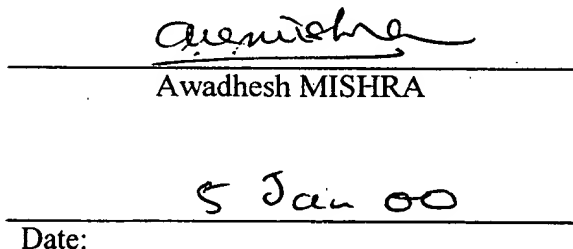 Awadhesh MISHRA
5 Jan 00
Date: